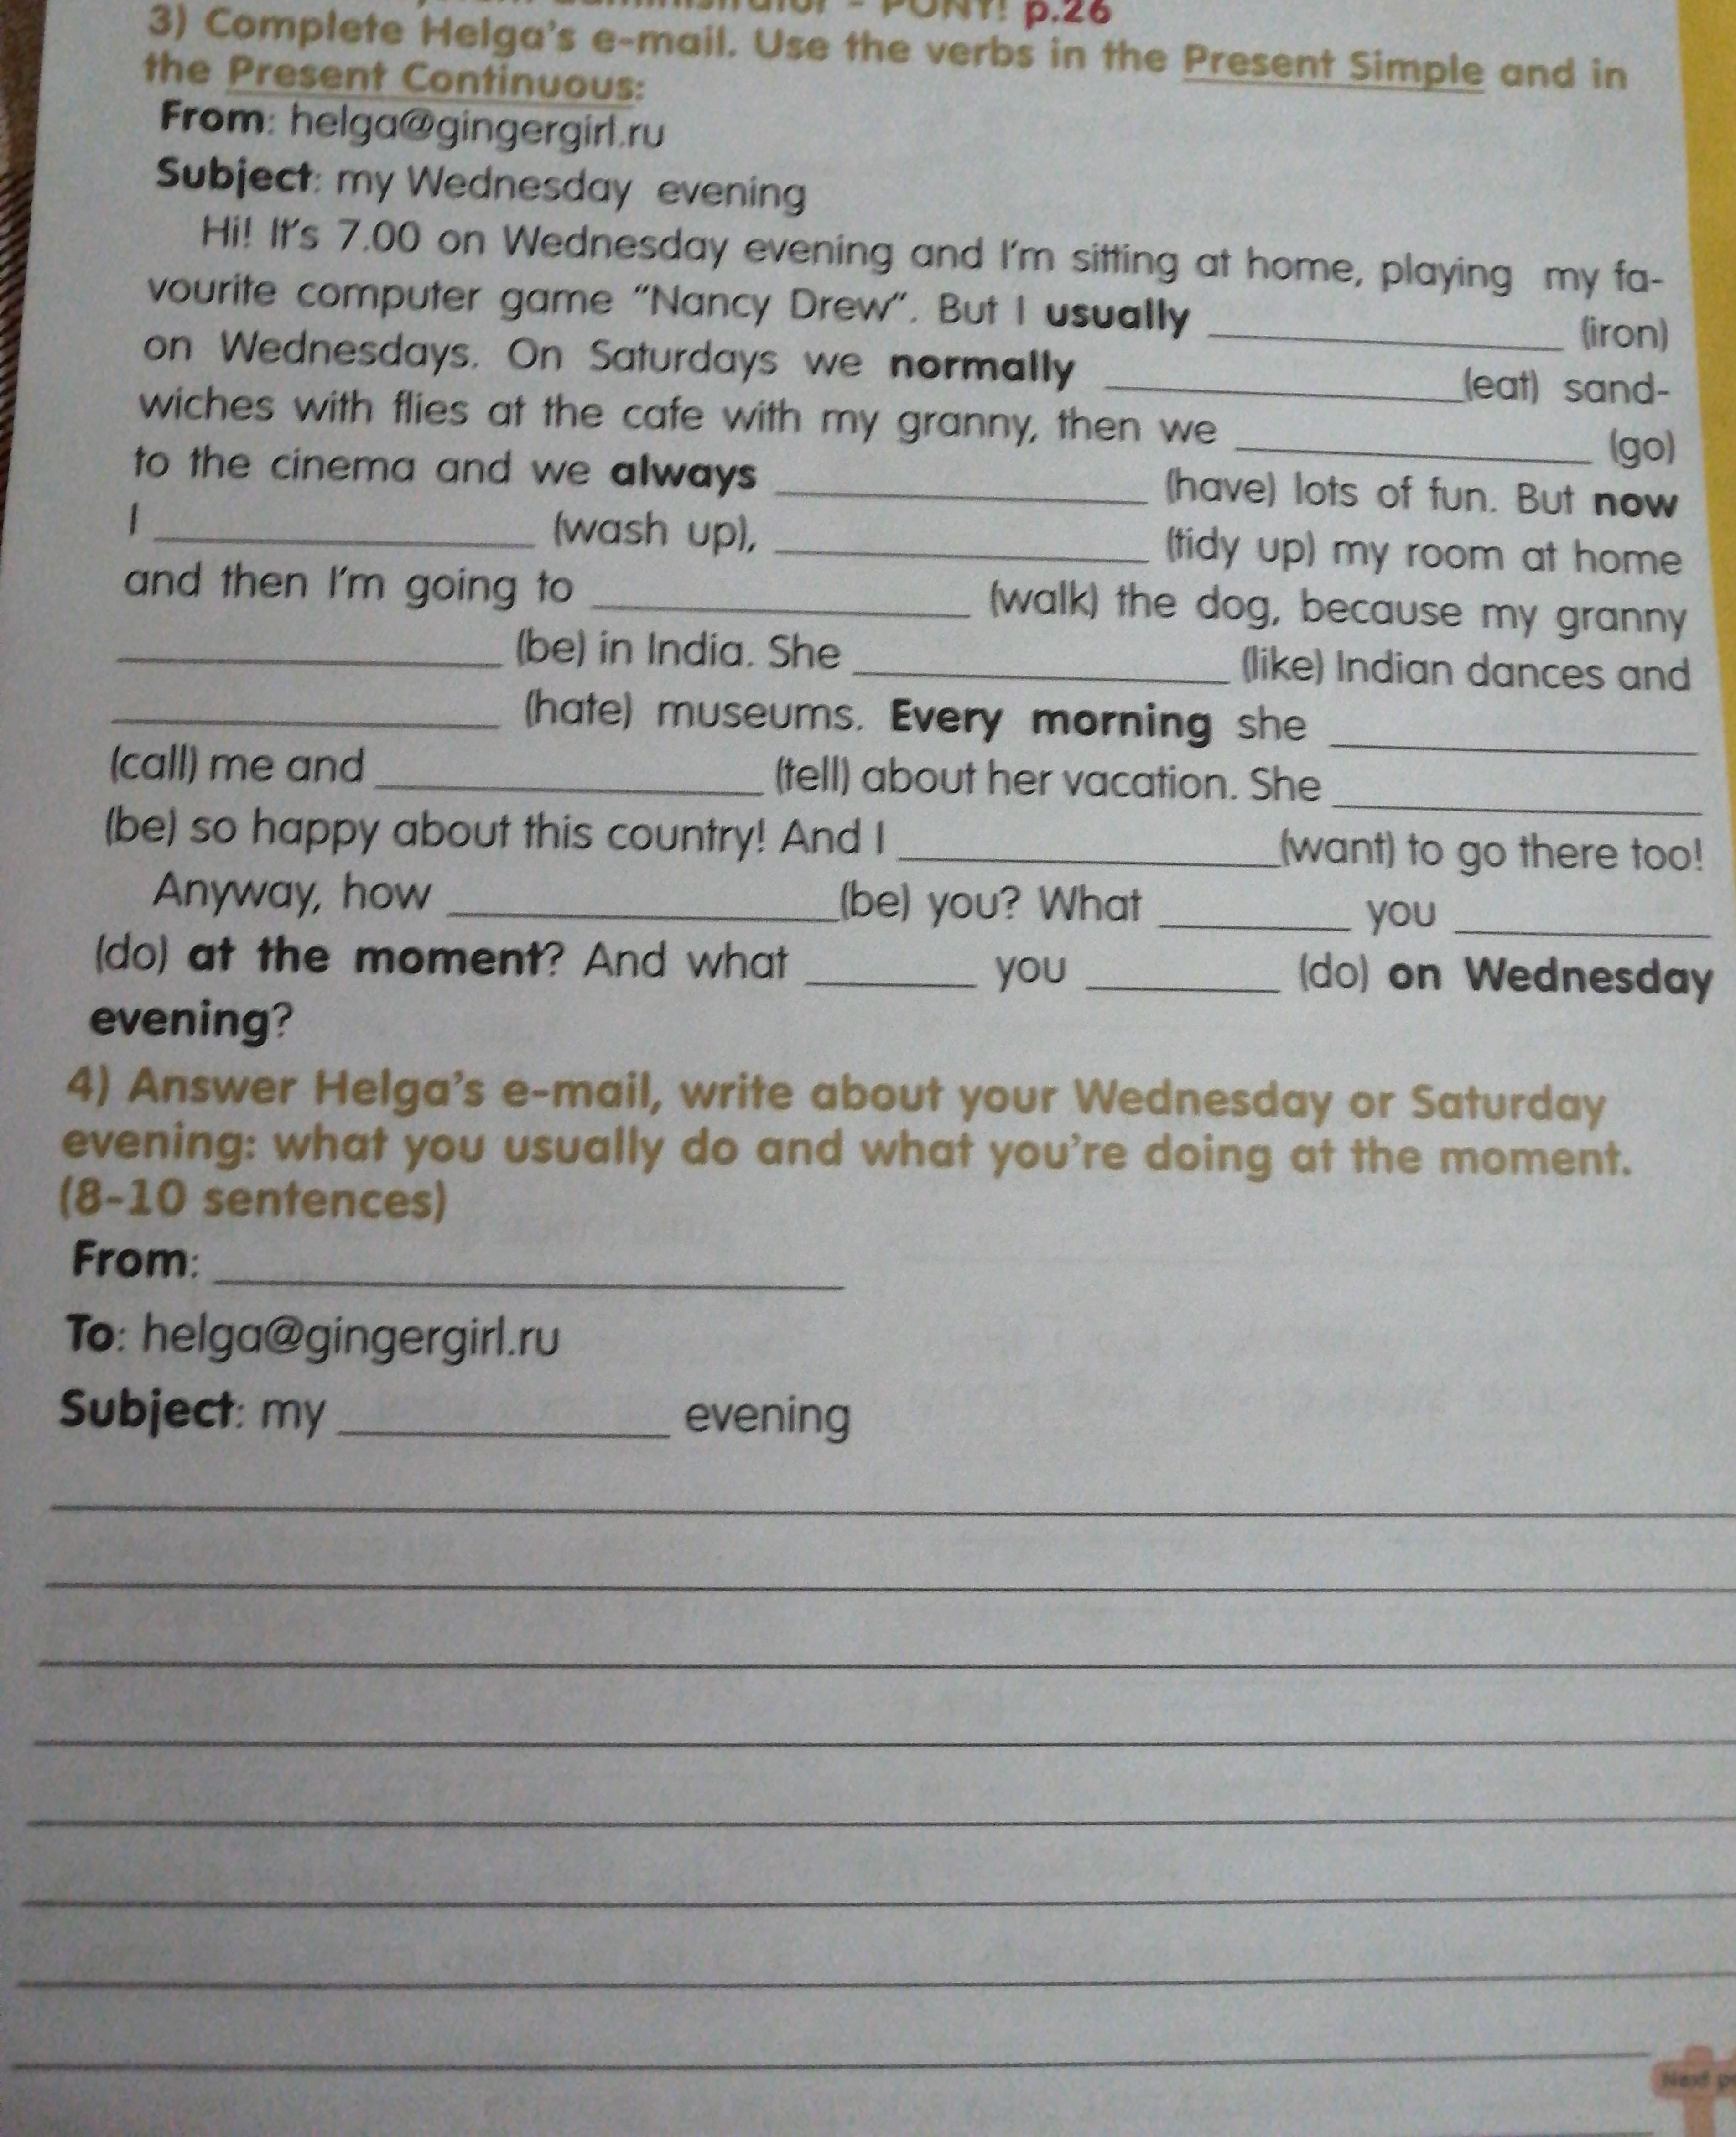 PONY! p.26
3) Complete Helga's e-mail. Use the verbs in the Present Simple and in
the Present Continuous:
From: helga@gingergirl.ru
Subject: my Wednesday evening
Hi! It's 7.00 on Wednesday evening and I'm sitting at home, playing my fa-
vourite computer game "Nancy Drew". But I usually ____________ (iron)
on Wednesdays. On Saturdays we normally ____________ (eat) sand-
wiches with flies at the cafe with my granny, then we ____________ (go)
to the cinema and we always ____________ (have) lots of fun. But now
I ____________ (wash up), ____________ (tidy up) my room at home
and then I'm going to ____________ (walk) the dog, because my granny
____________ (be) in India. She ____________ (like) Indian dances and
____________ (hate) museums. Every morning she ____________
(call) me and ____________ (tell) about her vacation. She ____________
(be) so happy about this country! And I ____________ (want) to go there too!
Anyway, how ____________ (be) you? What ______ you ________
(do) at the moment? And what ______ you ______ (do) on Wednesday
evening?
4) Answer Helga's e-mail, write about your Wednesday or Saturday
evening: what you usually do and what you're doing at the moment.
(8-10 sentences)
From: ____________________
To: helga@gingergirl.ru
Subject: my __________ evening
Next